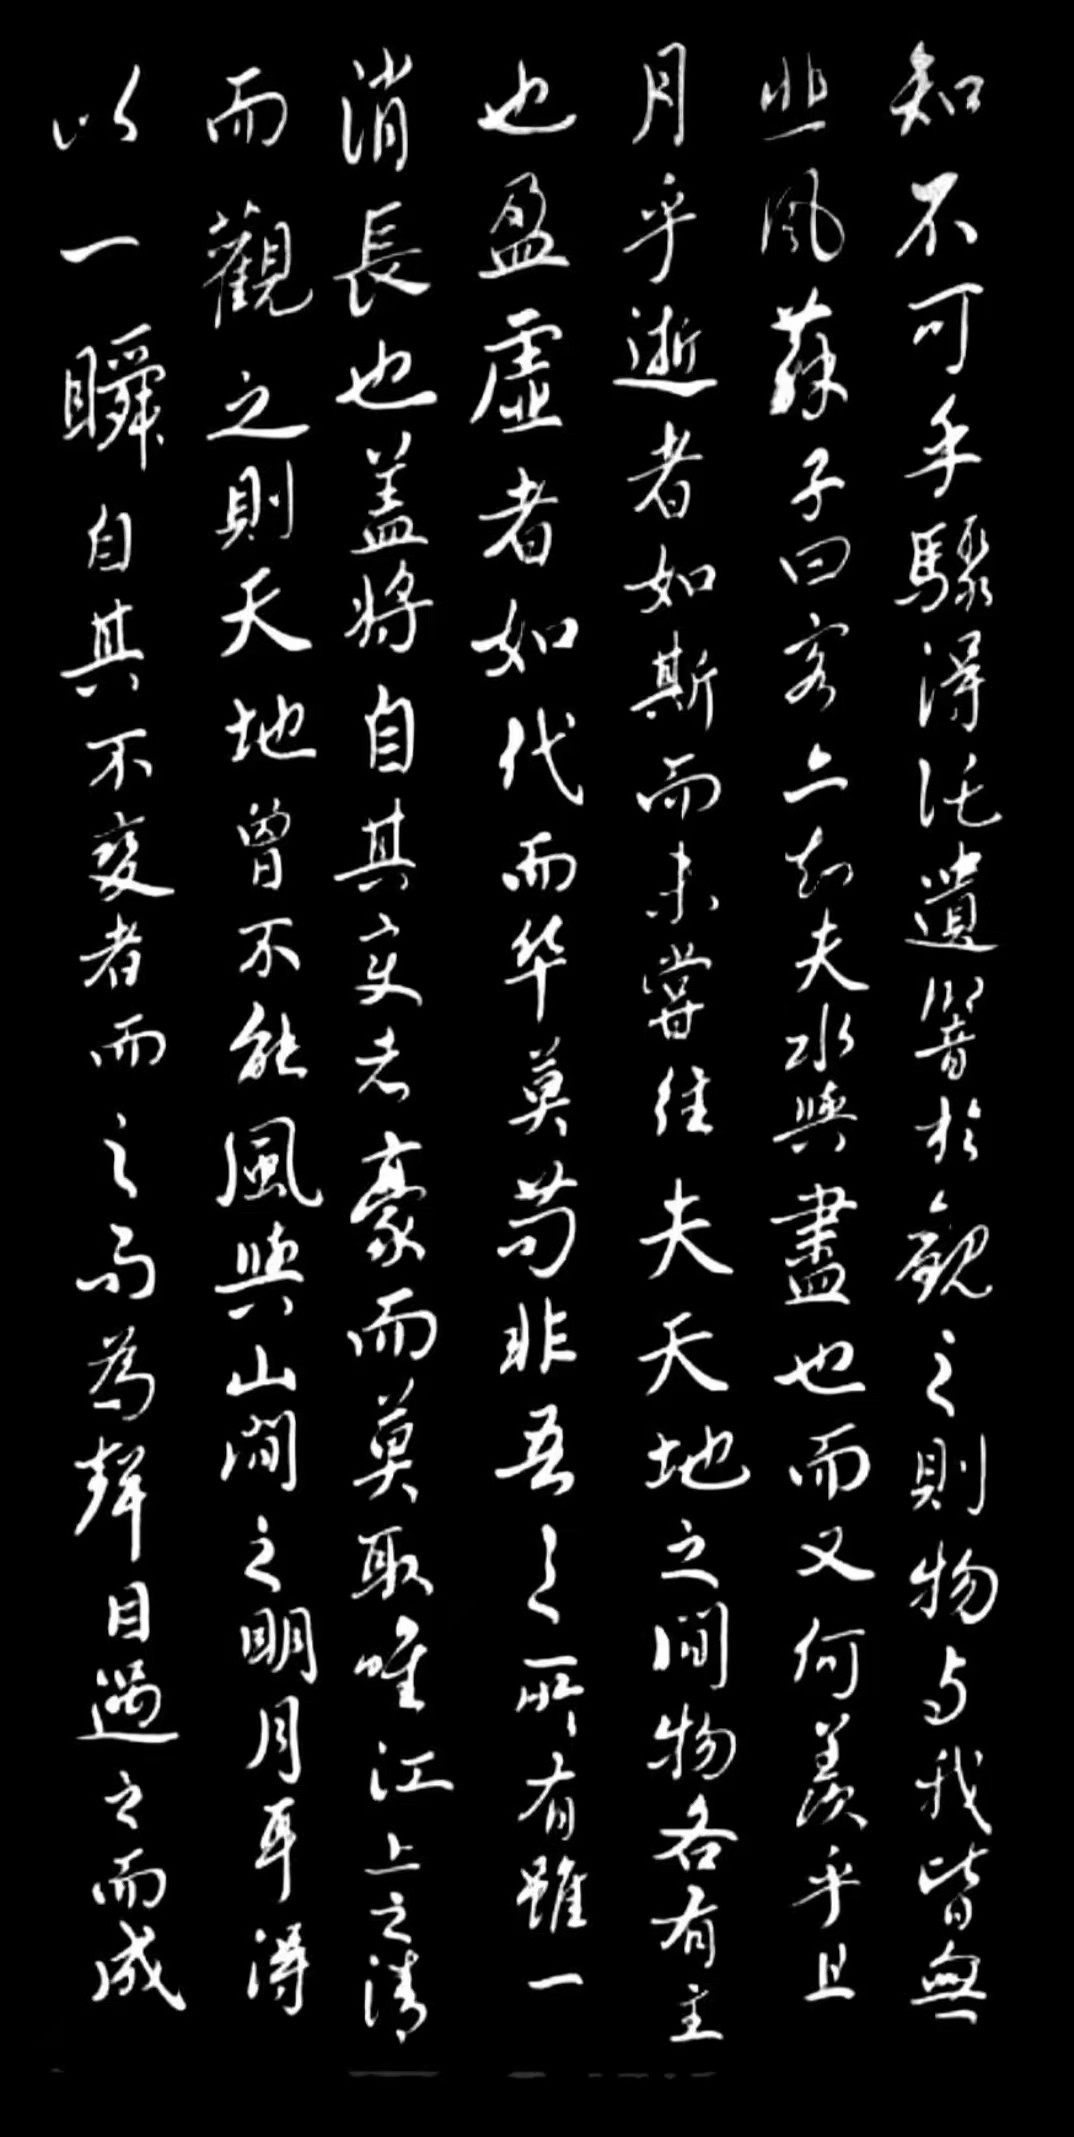 知不可乎驟得託遺響於觀之則物与我皆無
悲風蘇子曰客亦知夫水與盡也而又何羨乎且
月乎逝者如斯而未嘗往夫天地之間物各有主
也盈虛者如代而卒莫苟非吾之所有雖一
消長也盖將自其變者豪而莫取唯江上之清
而觀之則天地曾不能風與山間之明月耳得
以一瞬自其不變者而之而為聲目遇之而成